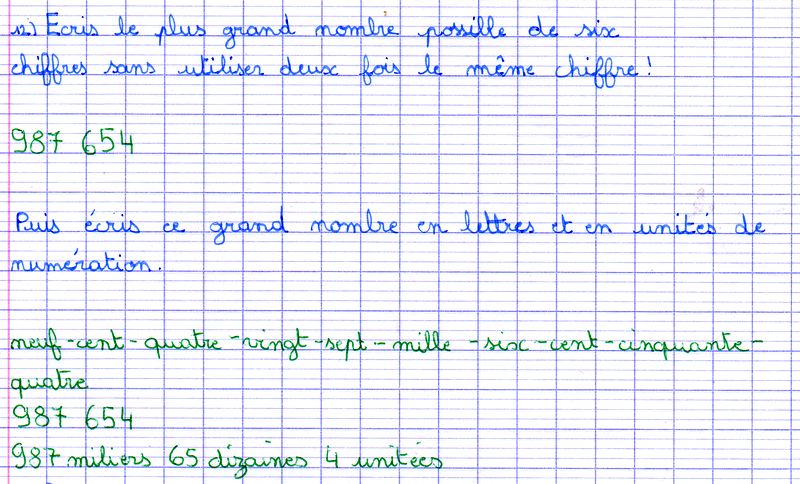 12) Ecris le plus grand nombre possille de six
chiffres sans utiliser deux fois le même chiffre !
987 654
Puis écris ce grand nombre en lettres et en unités de
numération.
neuf-cent-quatre-vingt-sept-mille-six-cent-cinquante-
quatre
987 654
987 miliers 65 dizaines 4 unitées